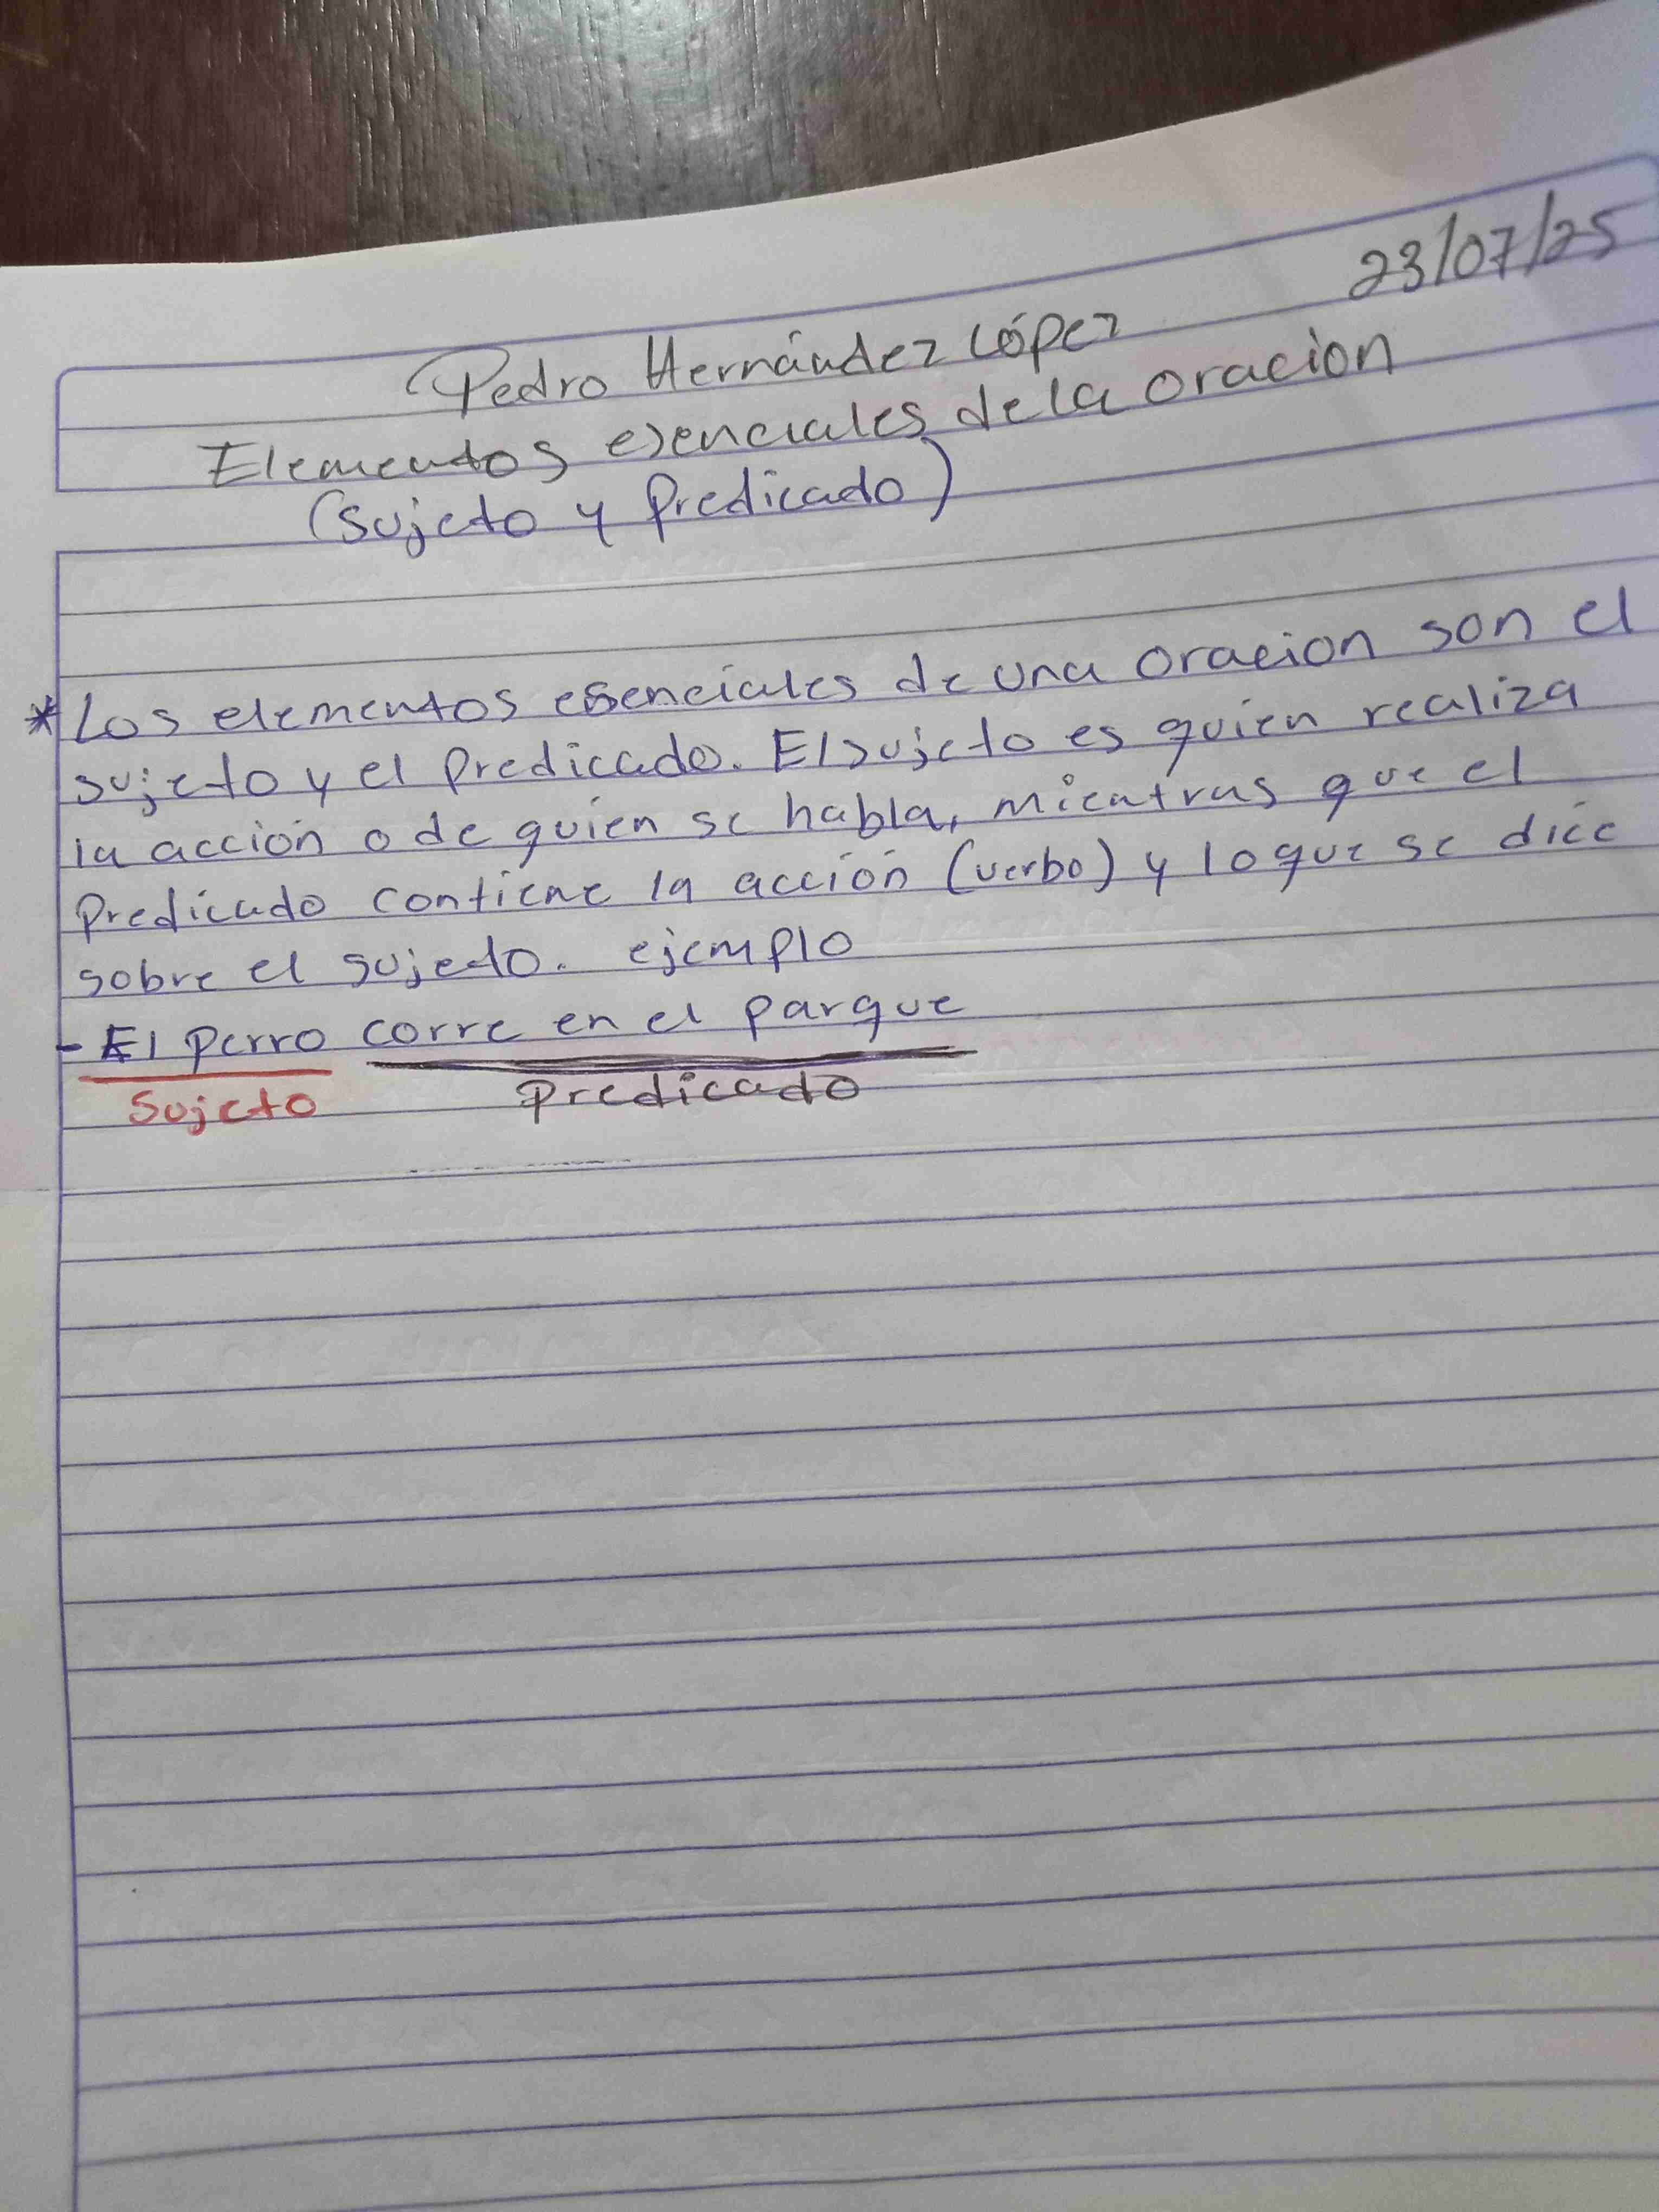 23/07/25
Pedro Hernández López
Elementos esenciales de la oracion
(sujeto y predicado)
*Los elementos esenciales de una oracion son el
sujeto y el predicado. El sujeto es quien realiza
la acción o de quien se habla, mientras que el
predicado contiene la acción (verbo) y lo que se dice
sobre el sujeto. ejemplo
- El perro corre en el parque
Sujeto predicado